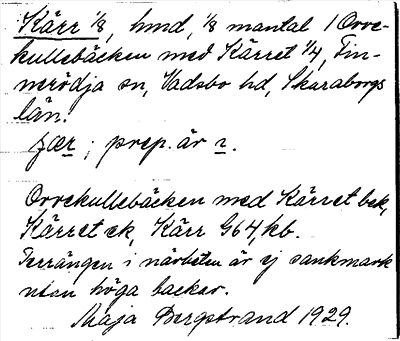 Kärr 1/8, hmd, 1/8 mantal / Orre-
kullebäcken med Kärret 1/4, Fin-
nerödja sn, Vadsbo hd, Skaraborgs
län.
; prep. är 2.
Orrekullebäcken med Kärret bek,
Kärret ek, Kärr G64, kb.
Terrängen i närheten är ej sankmark
utan höga backar.
Maja Bergstrand 1929.